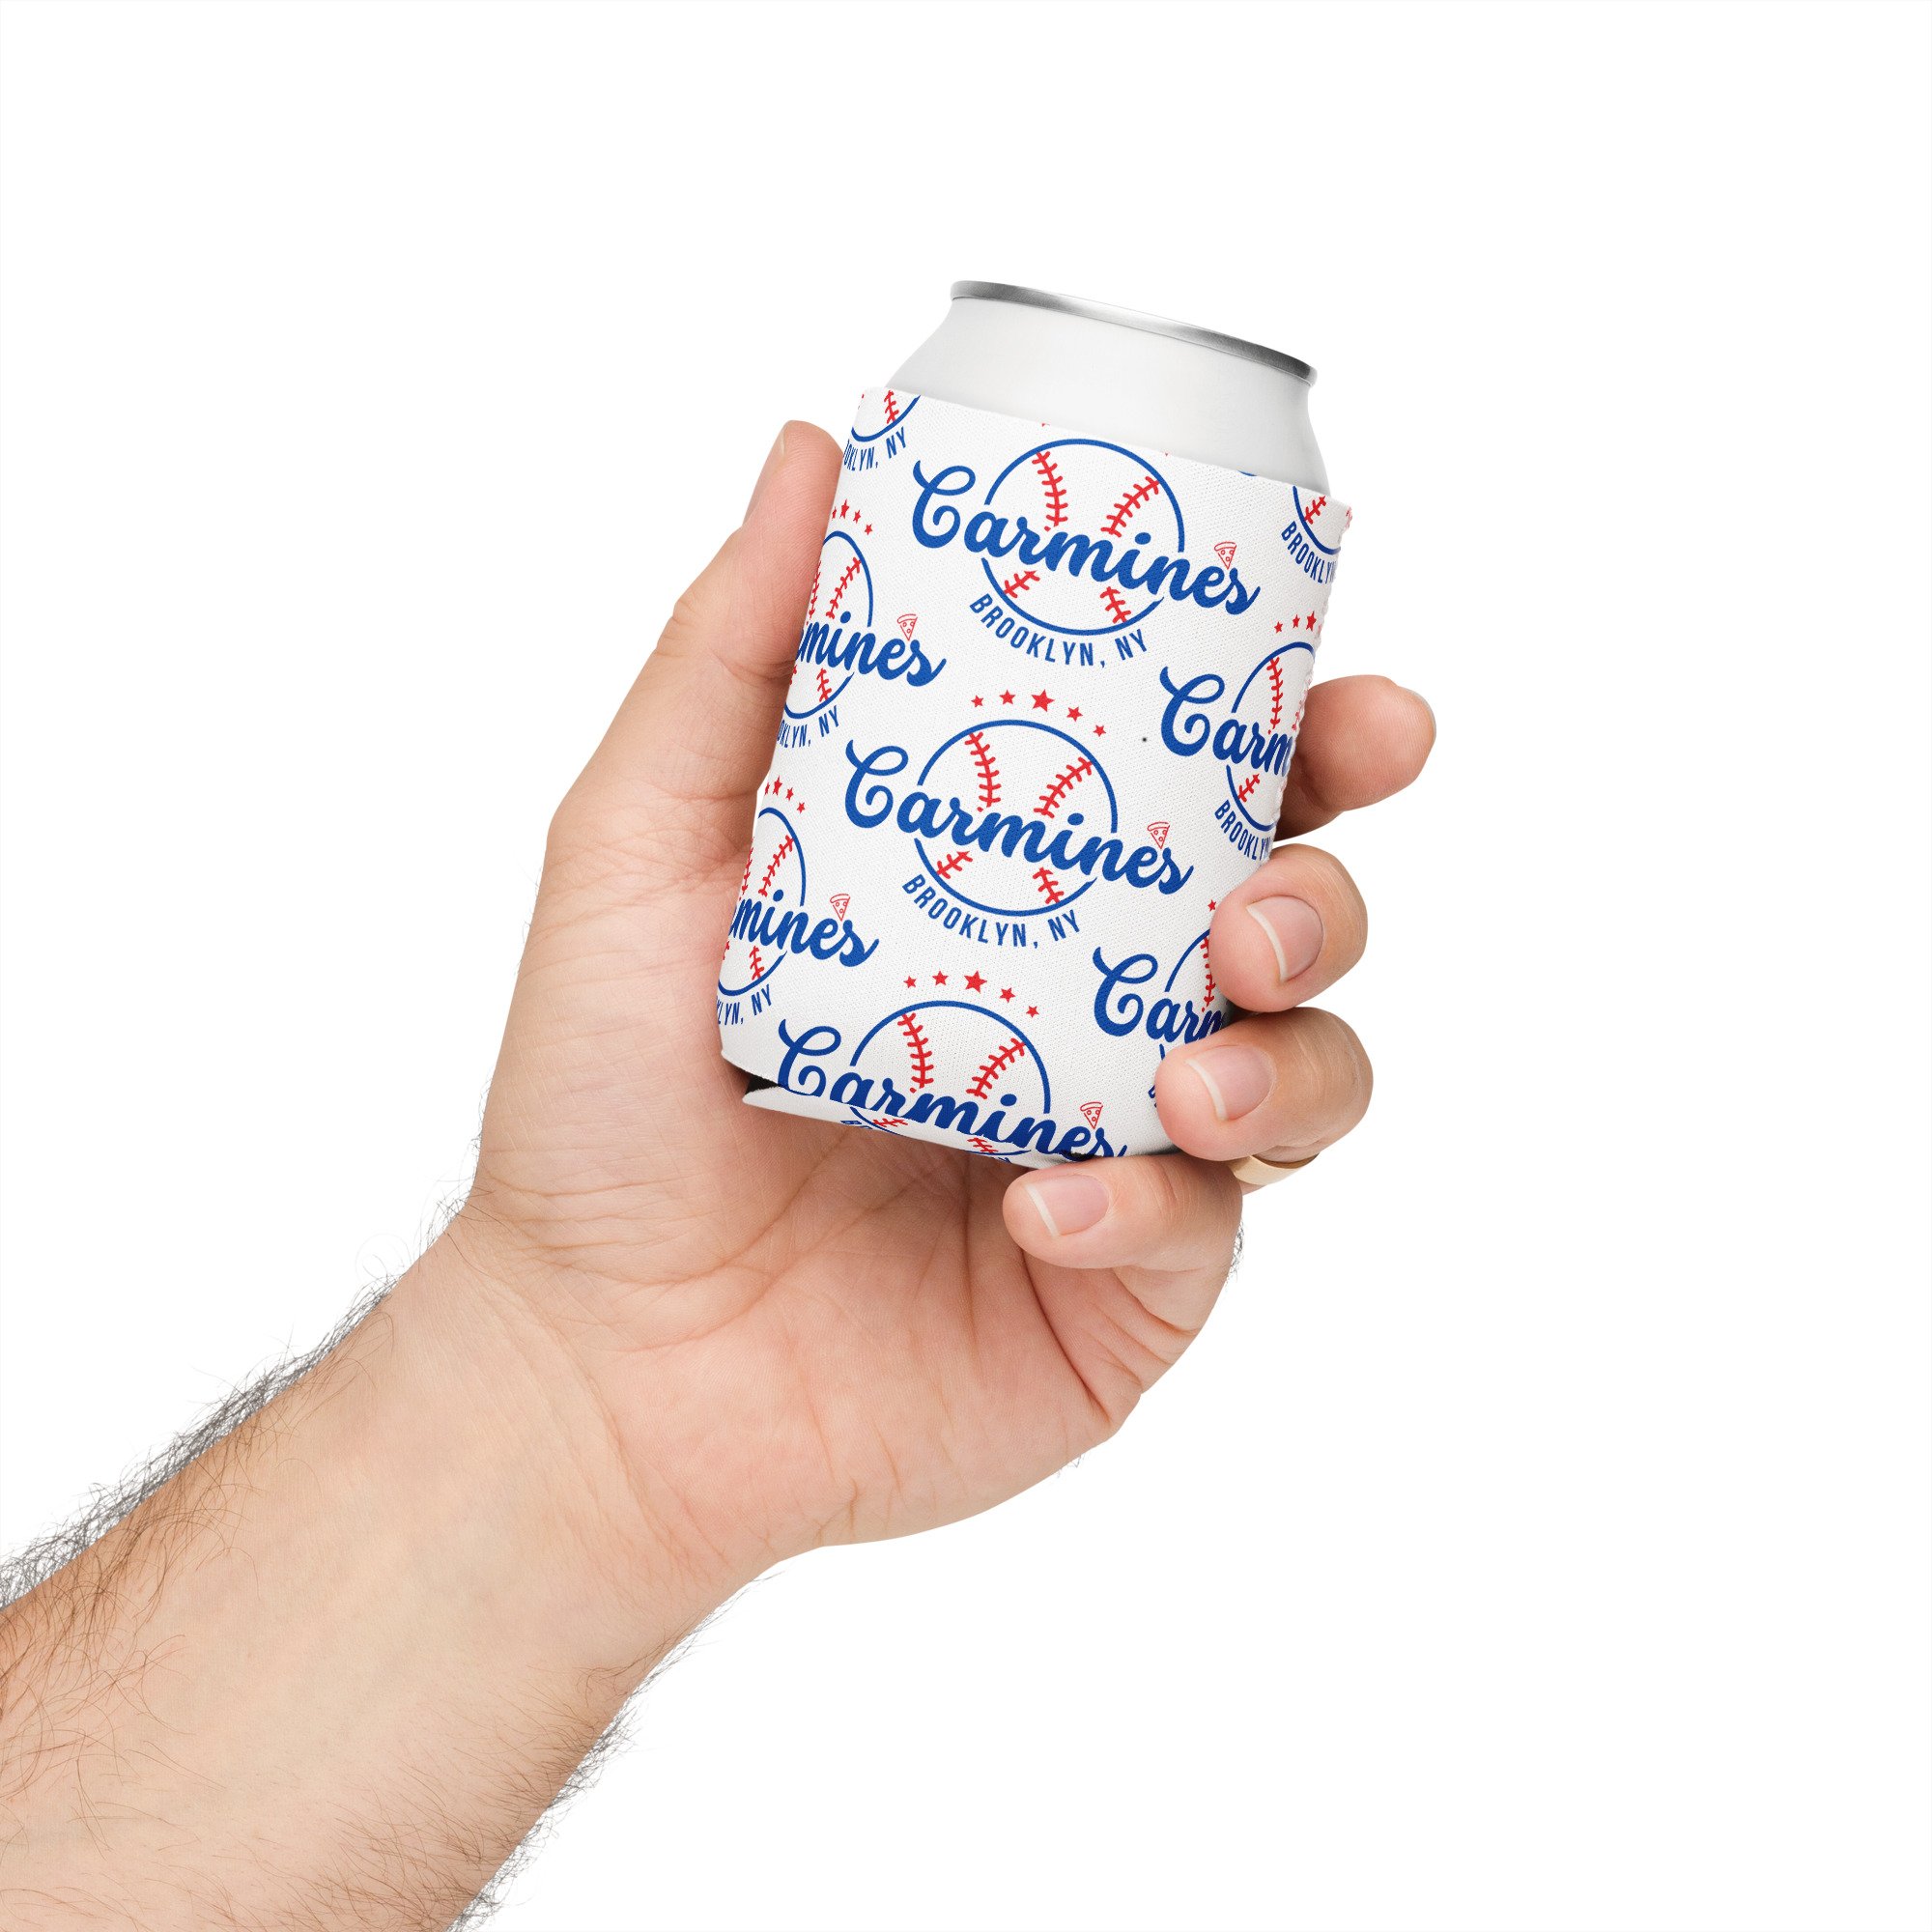 OKLYN, NY
Carmine's
BROOKLYN, NY
BROOKLYN
rmine's
OKLYN, NY
Carm
BROOKLYN
Carmine's
BROOKLYN, NY
rmine's
LYN, NY
Carm
Carmine's